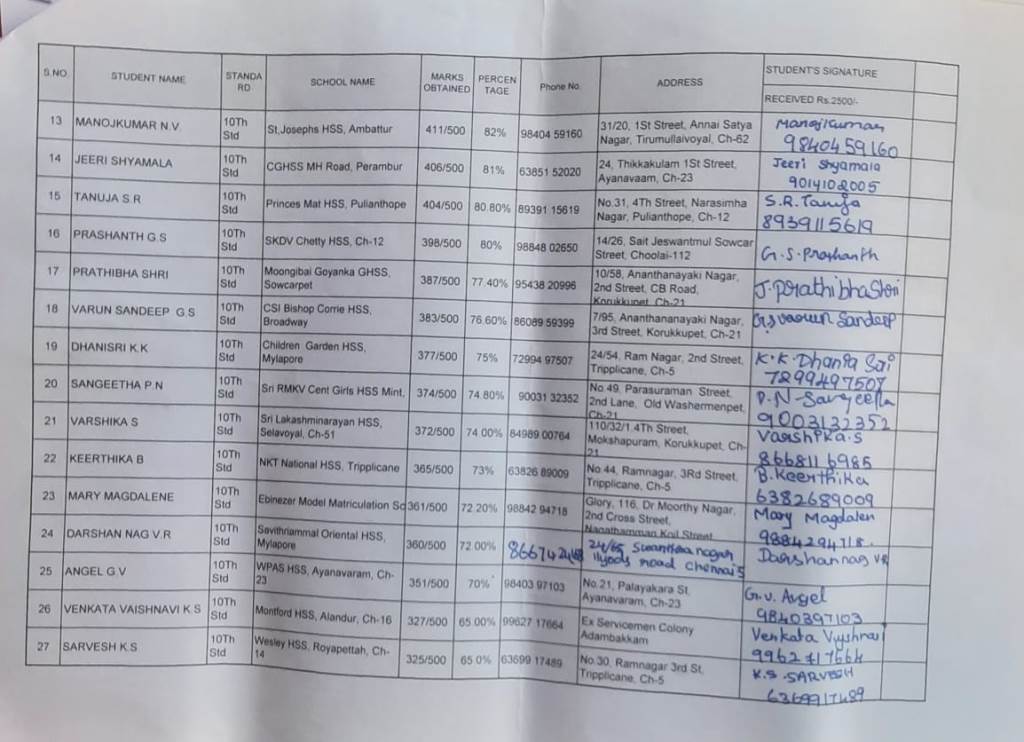 S.NO. STUDENT NAME STANDA RD SCHOOL NAME MARKS OBTAINED PERCEN TAGE Phone No. ADDRESS STUDENT'S SIGNATURE
RECEIVED Rs.2500/-
13 MANOJKUMAR N.V 10Th Std St.Josephs HSS, Ambattur 411/500 82% 98404 59160 31/20, 1St Street, Annai Satya Nagar, Tirumullaivoyal, Ch-62 Manojkumar
9840459160
14 JEERI SHYAMALA 10Th Std CGHSS MH Road, Perambur 406/500 81% 63851 52020 24, Thikkakulam 1St Street, Ayanavaam, Ch-23 Jeeri Shyamala
9014102005
15 TANUJA S R 10Th Std Princes Mat HSS, Pulianthope 404/500 80.80% 89391 15619 No.31, 4Th Street, Narasimha Nagar, Pulianthope, Ch-12 S.R.Tanuja
8939115619
16 PRASHANTH G.S 10Th Std SKDV Chetty HSS, Ch-12 398/500 80% 98848 02650 14/26, Sait Jeswantmul Sowcar Street, Choolai-112 G.S.Prashanth
17 PRATHIBHA SHRI 10Th Std Moongibai Goyanka GHSS, Sowcarpet 387/500 77.40% 95438 20996 10/58, Ananthanayaki Nagar, 2nd Street, CB Road, Korukkupet, Ch-21 J.PrathibhaShri
18 VARUN SANDEEP G.S 10Th Std CSI Bishop Corrie HSS, Broadway 383/500 76.60% 86089 59399 7/95, Ananthananayaki Nagar, 3rd Street, Korukkupet, Ch-21 G.S varun Sandeep
19 DHANISRI K.K 10Th Std Children Garden HSS, Mylapore 377/500 75% 72994 97507 24/54, Ram Nagar, 2nd Street, Tripplicane, Ch-5 K.K.Dhania Sri
7299497507
20 SANGEETHA P.N 10Th Std Sri RMKV Cent Girls HSS Mint, 374/500 74.80% 90031 32352 No.49, Parasuraman Street, 2nd Lane, Old Washermenpet, Ch-21 P.N-Sangeetha
9003132352
21 VARSHIKA S 10Th Std Sri Lakashminarayan HSS, Selavoyal, Ch-51 372/500 74.00% 84989 00764 110/32/1 4Th Street, Mokshapuram, Korukkupet, Ch-21 Varshika.S
8668116985
22 KEERTHIKA B 10Th Std NKT National HSS, Tripplicane 365/500 73% 63826 89009 No 44, Ramnagar, 3Rd Street, Tripplicane, Ch-5 B.Keerthika
6382689009
23 MARY MAGDALENE 10Th Std Ebinezer Model Matriculation Sc 361/500 72.20% 98842 94718 Glory, 116, Dr Moorthy Nagar, 2nd Cross Street, Nagathamman Koil Street Mary Magdalen
9884294718.
24 DARSHAN NAG V.R 10Th Std Savithriammal Oriental HSS, Mylapore 360/500 72.00% 24/65 road chennai 5 Darshannag VR
25 ANGEL G.V 10Th Std WPAS HSS, Ayanavaram, Ch-23 351/500 70% 98403 97103 No.21, Palayakara St, Ayanavaram, Ch-23 G.V. Angel
9840397103
26 VENKATA VAISHNAVI K S 10Th Std Montford HSS, Alandur, Ch-16 327/500 65.00% 99627 17664 Ex Servicemen Colony Adambakkam Venkata Vyshnavi
9962717664
27 SARVESH K.S 10Th Std Wesley HSS, Royapettah, Ch-14 325/500 65.0% 63699 17489 No.30, Ramnagar 3rd St, Tripplicane, Ch-5 K.S.SARVESH
6369917489